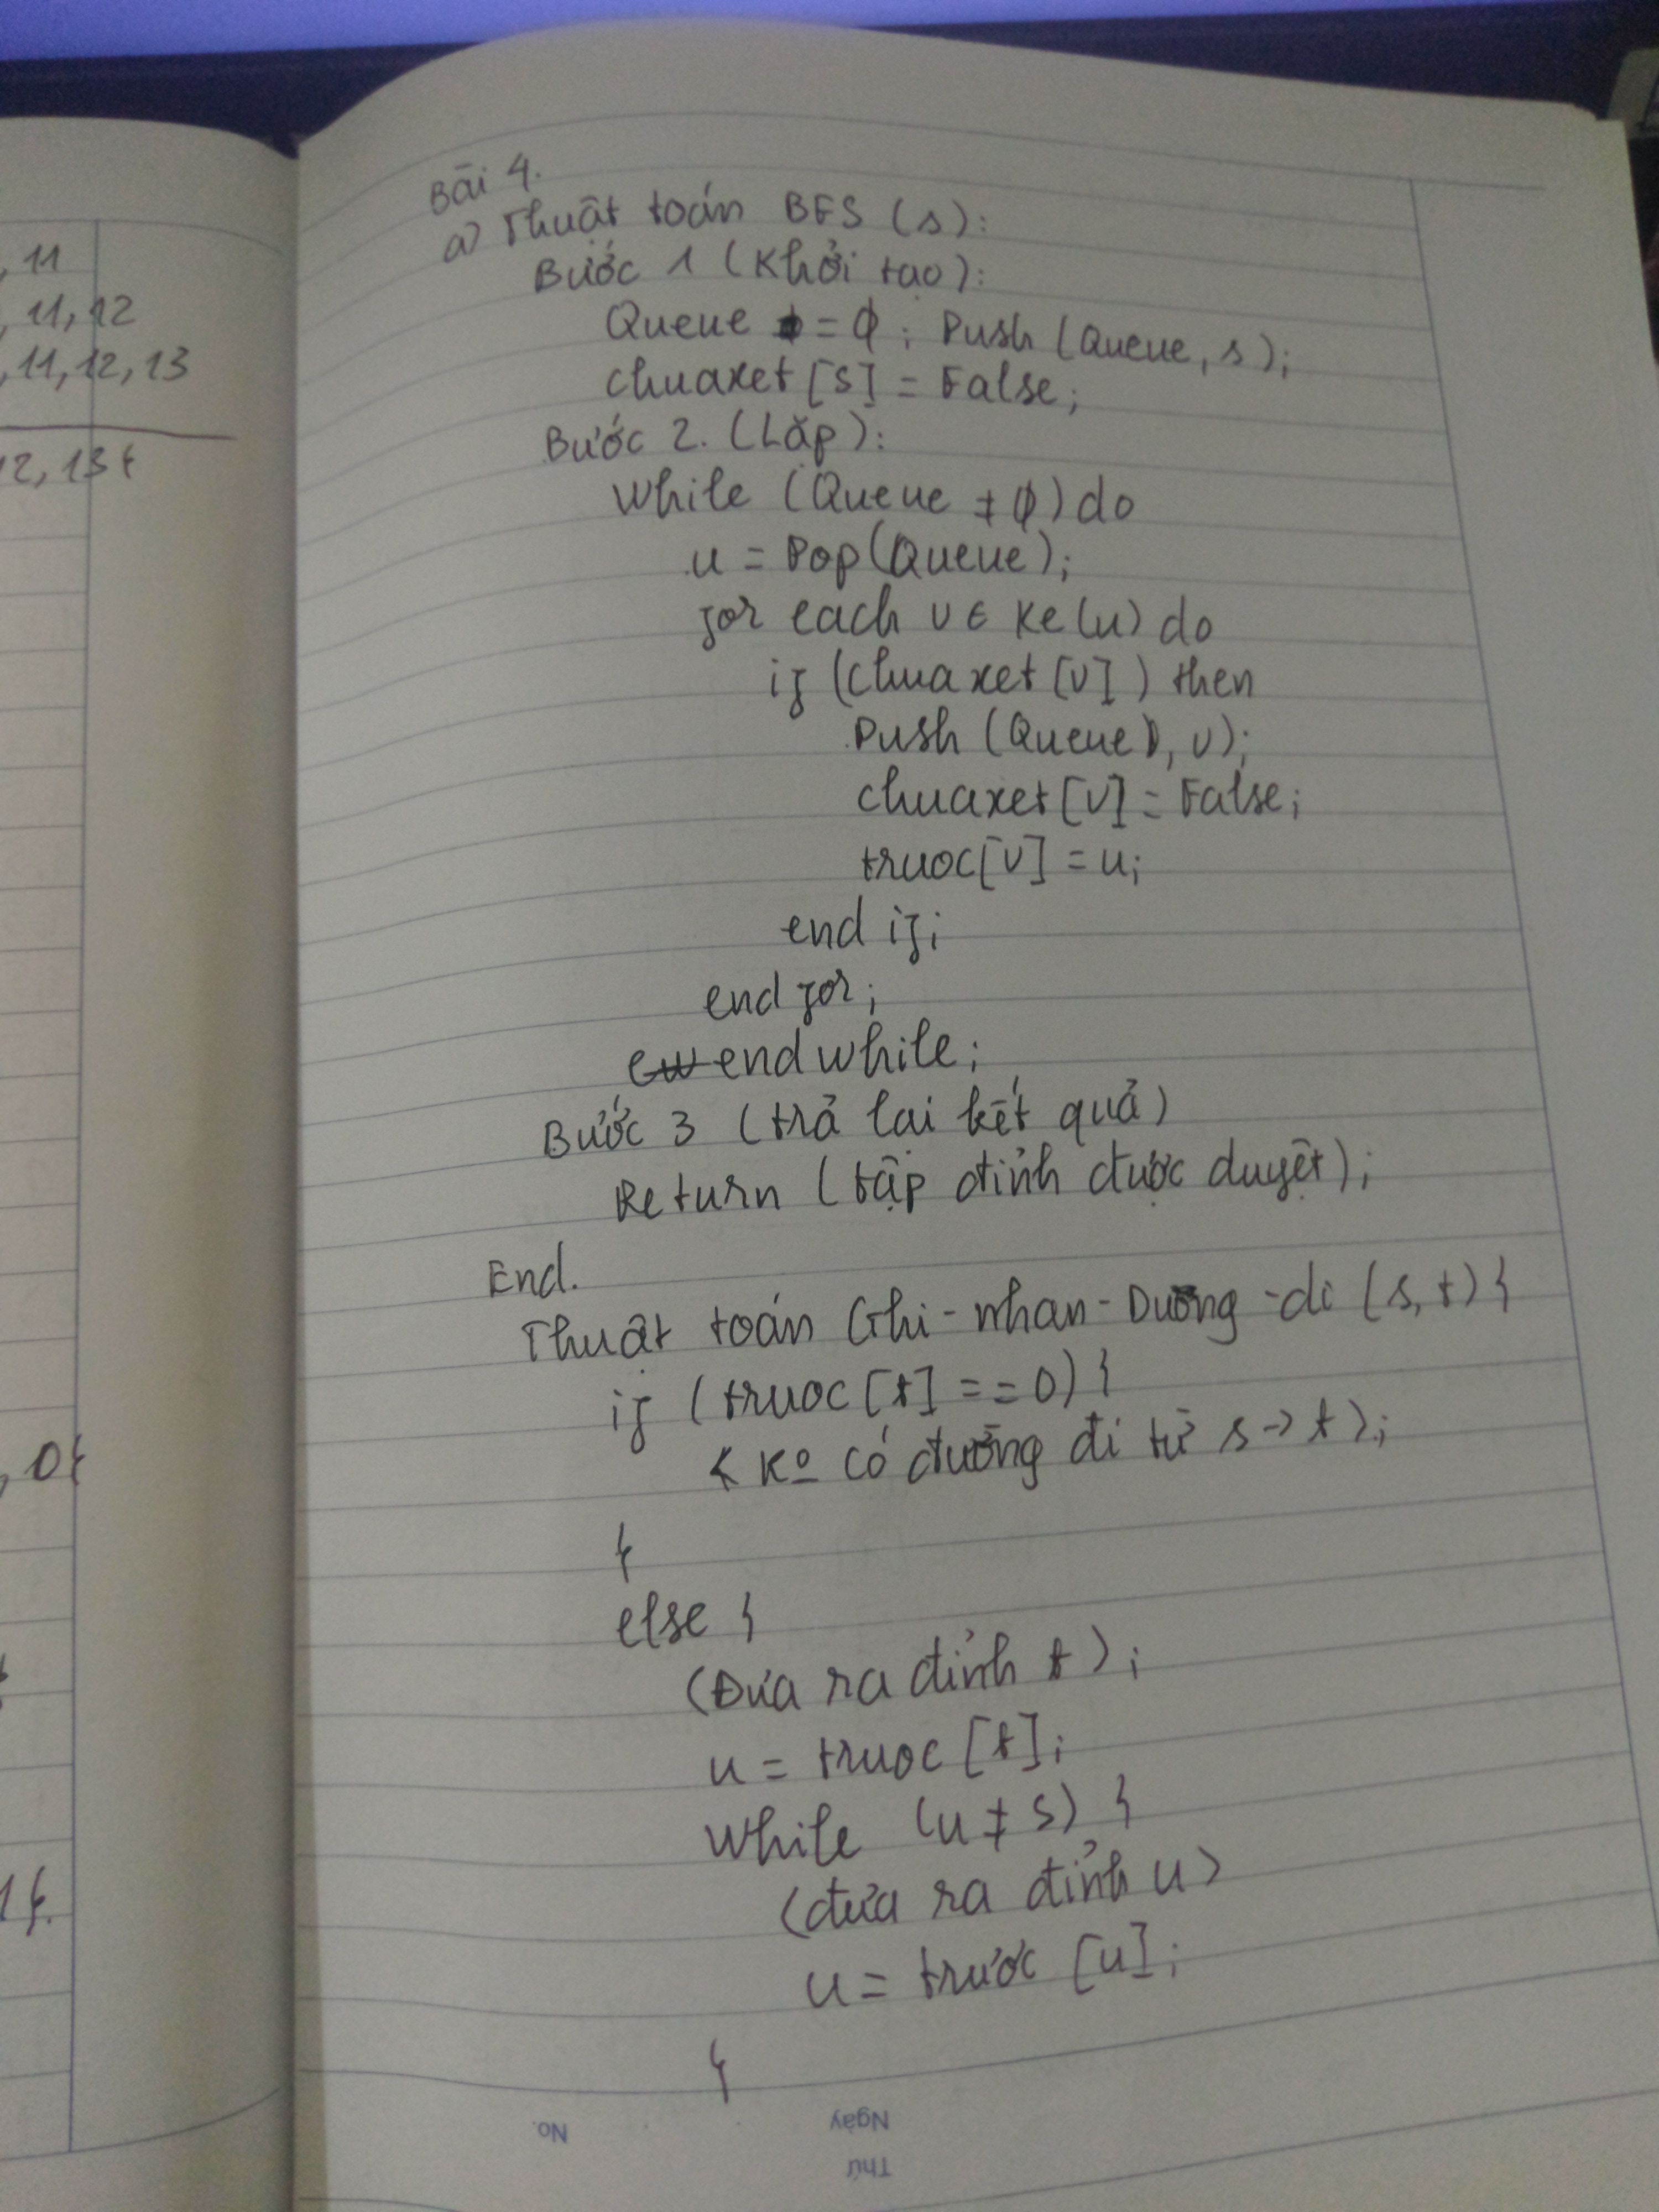 , 11
, 11, 12
, 11, 12, 13
2, 13}
, 0}
1}.
Bài 4.
a) Thuật toán BFS (s):
Bước 1 (Khởi tạo):
Queue = ϕ; Push (Queue, s);
chuaxet [s] = False;
Bước 2. (Lặp):
While (Queue ≠ ϕ) do
u = Pop (Queue);
for each v ∈ Ke(u) do
if (chuaxet [v]) then
Push (Queue), v);
chuaxet [v] = False;
truoc[v] = u;
end if;
end for;
end while;
Bước 3 (trả lại kết quả)
Return (tập đỉnh được duyệt);
End.
Thuật toán Ghi-nhan-Dường-di (s, t) {
if (truoc [t] == 0) {
< Ko có đường đi từ s → t >;
}
else {
(Đưa ra đỉnh t >;
u = truoc [t];
While (u ≠ s) {
(đưa ra đỉnh u >
u = trước [u];
}
No.
Ngày
Thứ